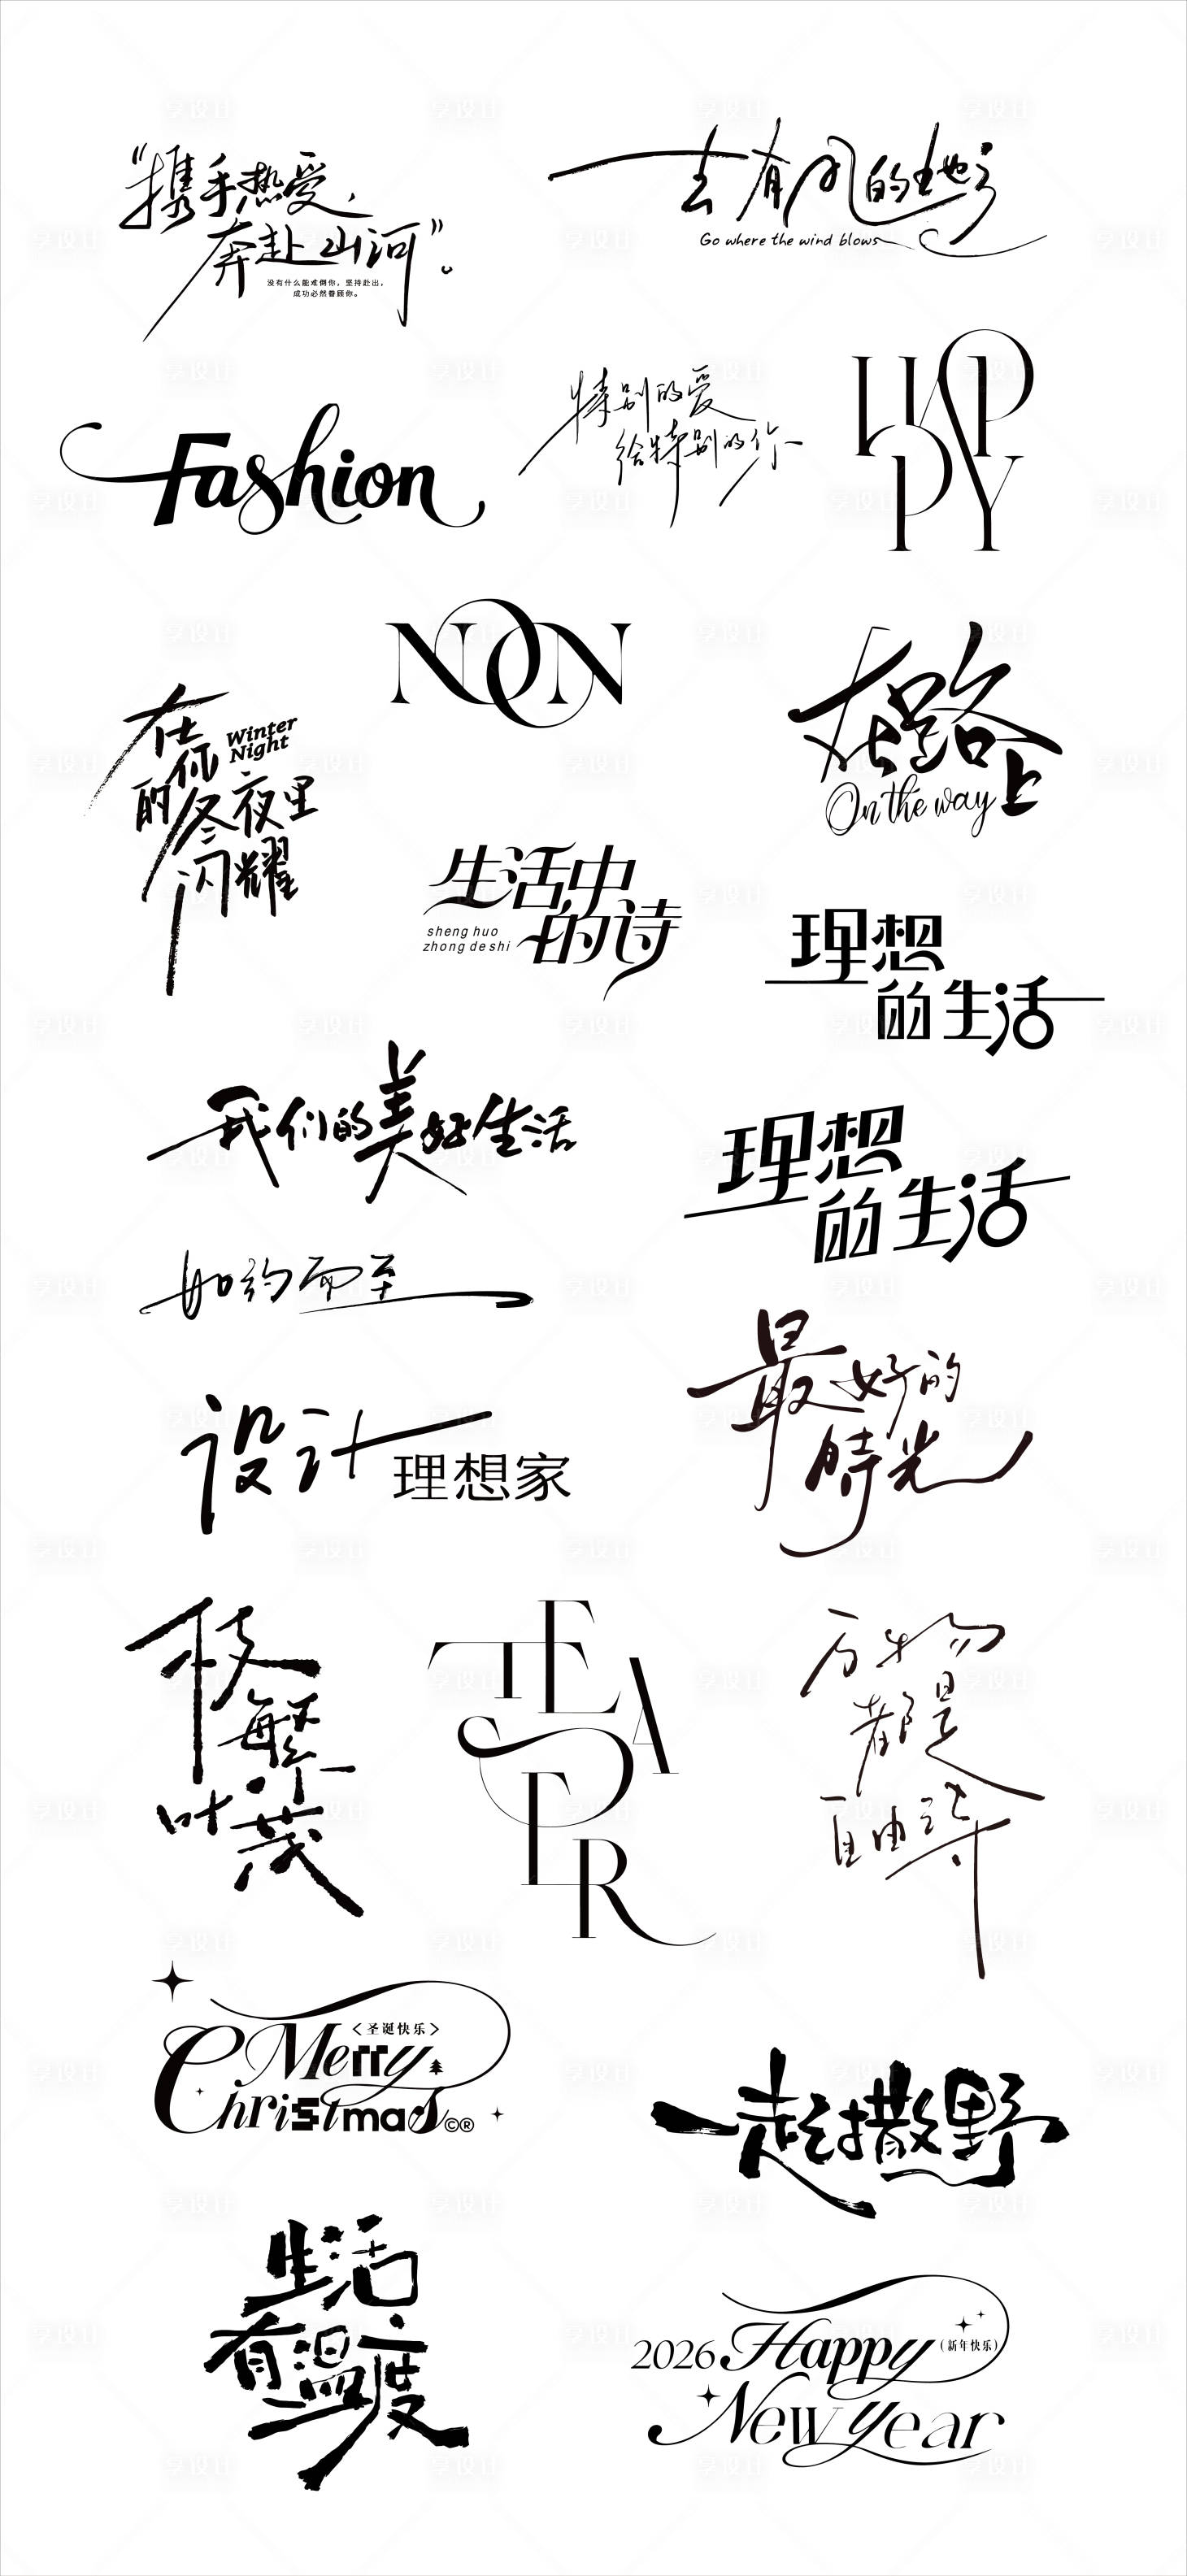 “携手热爱，
奔赴山河”。
没有什么能难倒你，坚持赴出，
成功必然眷顾你。
去有风的地方
Go where the wind blows
Fashion
特别的爱
给特别的你
HAP
PY
NOON
在你
Winter
Night
的冬夜里
闪耀
在路上
On the way
生活中
的诗
sheng huo
zhong de shi
理想
的生活
我们的美好生活
理想
的生活
如约而至
最好的
時光
设计
理想家
枝
繁
叶茂
TEA
DER
万物
都是
自由诗
Merry
<圣诞快乐>
Christmas©®
一起撒野
生活
有温度
2026 Happy
(新年快乐)
New year